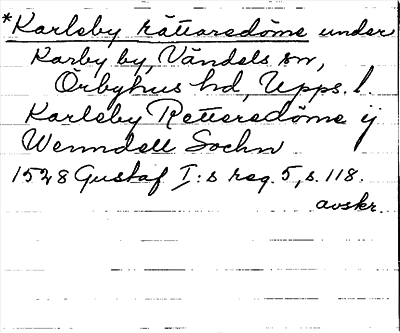 *Karlsby rättaredöme under
Karby by, Vändels sn,
Örbyhus hd, Upps. l.
Karlsby Rettaredöme ij
Wenndell Sochn
1528 Gustaf I:s reg. 5, s. 118.
avskr.